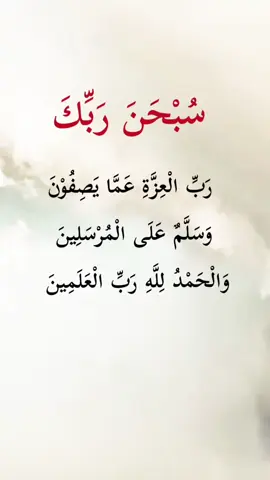 سُبْحَنَ رَبِّكَ
رَبِّ الْعِزَّةِ عَمَّا يَصِفُوْنَ
وَسَلَّمٌ عَلَى الْمُرْسَلِينَ
وَالْحَمْدُ لِلَّهِ رَبِّ الْعَلَمِينَ